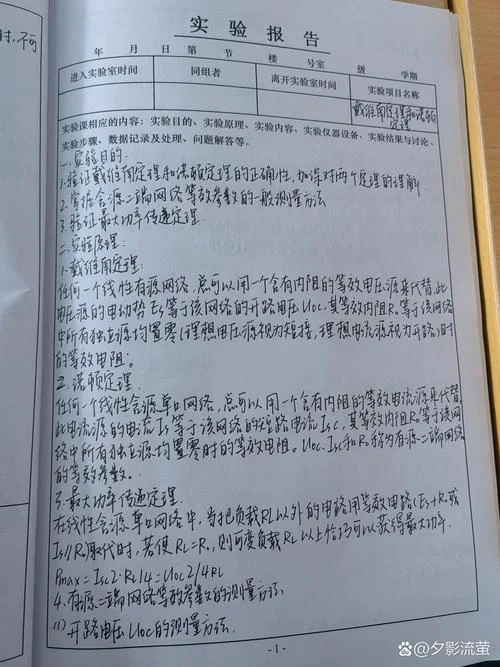 时.不可
实验报告
年 月 日 第 节 楼 号室 级 学期
进入实验室时间 同组者 离开实验室时间 实验项目名称
戴维南定理和诺顿
定理
实验课相应的内容：实验目的、实验原理、实验内容、实验仪器设备、实验结果与讨论、
实验步骤、数据记录及处理、问题解答等。
一.实验目的.
1.验证戴维南定理和诺顿定理的正确性,加深对两个定理的理解
2.掌握含源二端网络等效参数的一般测量方法
3.验证最大功率传递定理.
二.实验原理.
1.戴维南定理.
任何一个线性有源网络,总可以用一个含有内阻的等效电压源来代替.此
电压源的电动势Es等于该网络的开路电压Uoc.其等效内阻R。等于该网络
中所有独立源均置零(理想电压源视为短接,理想电流源视为开路)时
的等效电阻.
2.诺顿定理.
任何一个线性含源单口网络,总可以用一个含有内阻的等效电流源来代替
此电流源的电流Is等于该网络的短路电流Isc,其等效内阻R。等于该网
络中所有独立源均置零时的等效电阻.Uoc.Isc和R。称为有源二端网络
的等效参数.
3.最大功率传递定理.
在线性含源单口网络中,当把负载RL以外的电路用等效电路(Es+R。或
Is//R。)取代时,若使RL=R。,则可变负载RL以上恰巧可以获得最大功率.
Pmax=Isc2·RL/4=Uoc2/4RL
4.有源二端网络等效参数的测量方法
(1)开路电压Uoc的测量方法.
- 1 -
夕影流萤